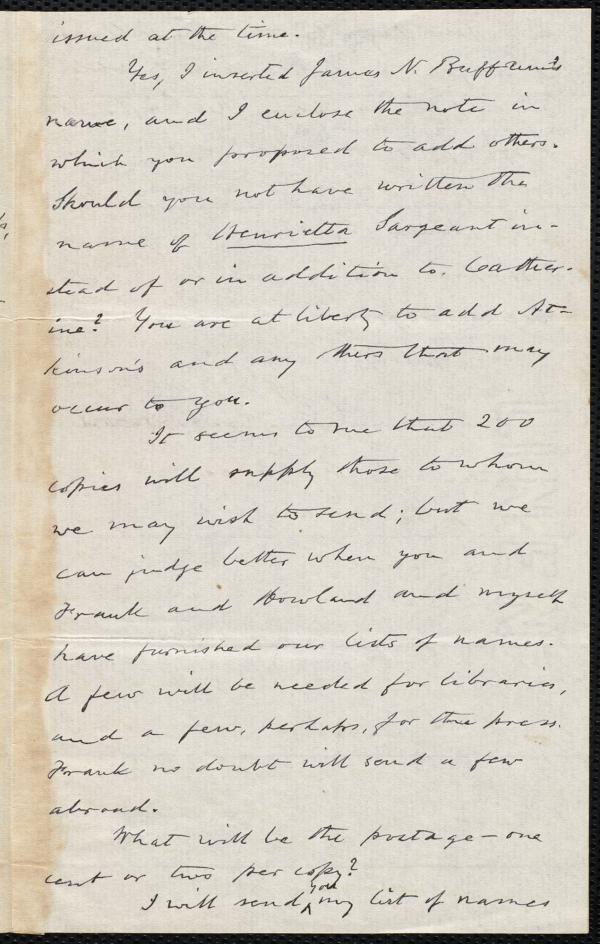 issued at the time.
Yes, I inserted James N. Buffum's
name, and I enclose the note in
which you proposed to add others.
Should you not have written the
name of Henrietta Sargeant in-
stead of or in addition to Cather-
ine? You are at liberty to add At-
kinson's and any others that may
occur to you.
It seems to me that 200
copies will supply those to whom
we may wish to send; but we
can judge better when you and
Frank and Howland and myself
have furnished our lists of names.
A few will be needed for libraries,
and a few, perhaps, for the press.
Frank no doubt will send a few
abroad.
What will be the postage – one
cent or two per copy?
I will send you my list of names